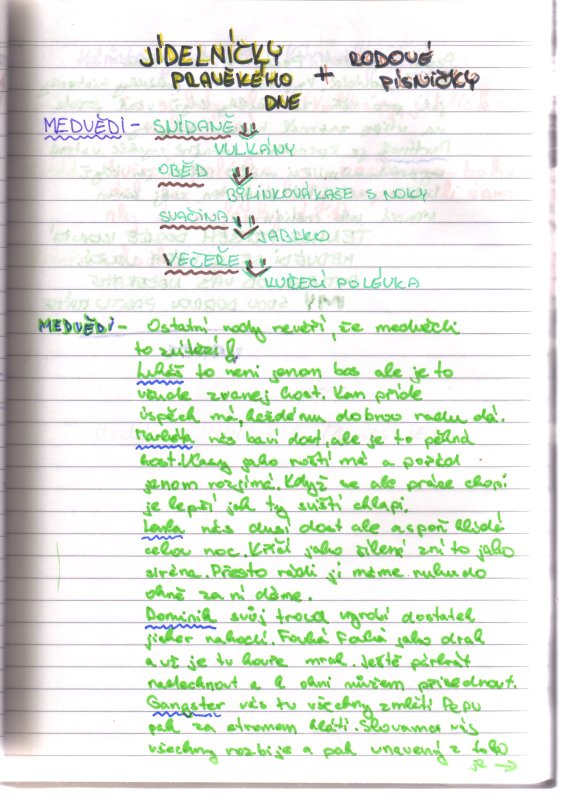 JÍDELNÍČKY + RODOVÉ
PRAVĚKÉHO PÍSNIČKY
DNE
MEDVĚDI - SNÍDANĚ
VULKÁNY
OBĚD
BYLINKOVÁ KAŠE S NOKY
SVAČINA
JABLKO
VEČEŘE
KUŘECÍ POLÉVKA
MEDVĚDI - Ostatní rody nevěří, že medvědi
to zvítězí!
Lukáš to není jenom bos ale je to
všude zvanej host. Kam přide
úspěch má, každému dobrou radu dá.
Markéta nás baví dost, ale je to pěkná
kost. Vlasy jako roští má a pořád
jenom rozjímá. Když se ale práce chopí
je lepší jak ty svišti chlapi.
Lenka nás dusí dost ale aspoň hlídá
celou noc. Křičí jako šílená zní to jako
siréna. Přesto rádi ji máme ruku do
ohně za ní dáme.
Dominik svůj troud vyrobí dostatek
jisker nahodí. Fouká Fouká jako drak
a už je tu kouře mrak. Ještě párkrát
nadechnout a k ohni můžem přisednout.
Gangster vás tu všechny zmlátí Pepu
pak za stromem klátí. Slovama vás
všechny rozbije a pak unavený z toho
je →